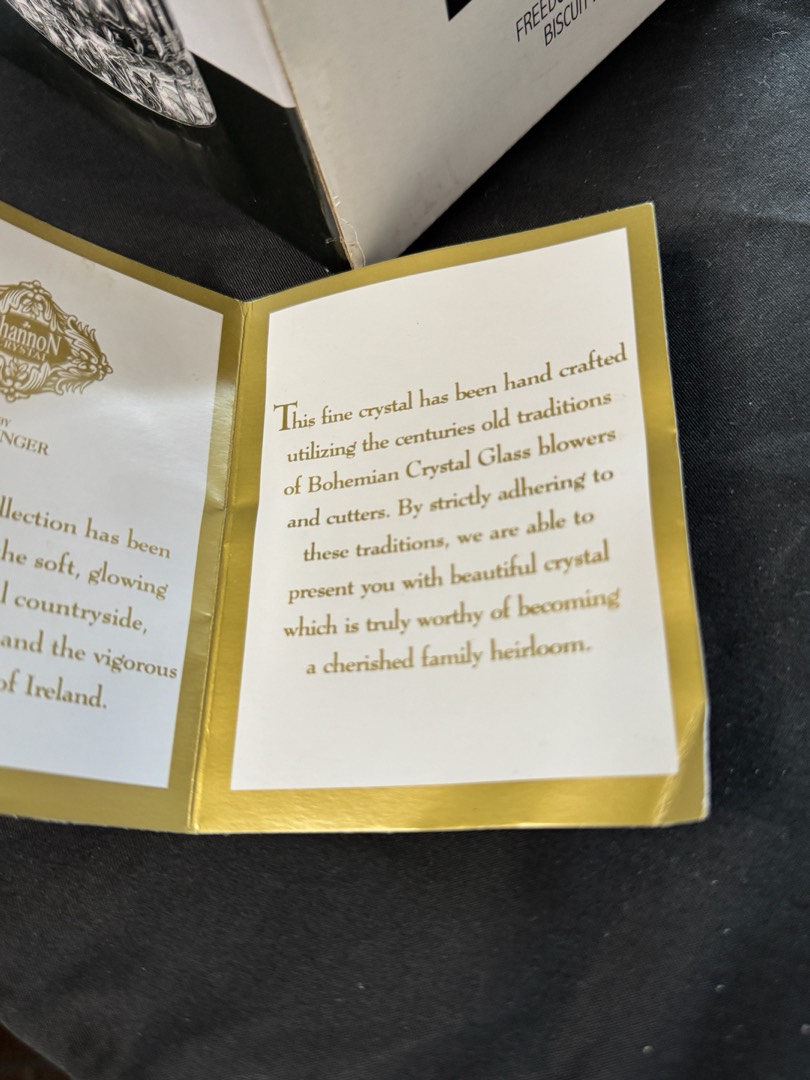 FREED
BISCUIT
hannoN
CRYSTAL
BY
NGER
llection has been
he soft, glowing
l countryside,
and the vigorous
of Ireland.
This fine crystal has been hand crafted
utilizing the centuries old traditions
of Bohemian Crystal Glass blowers
and cutters. By strictly adhering to
these traditions, we are able to
present you with beautiful crystal
which is truly worthy of becoming
a cherished family heirloom.